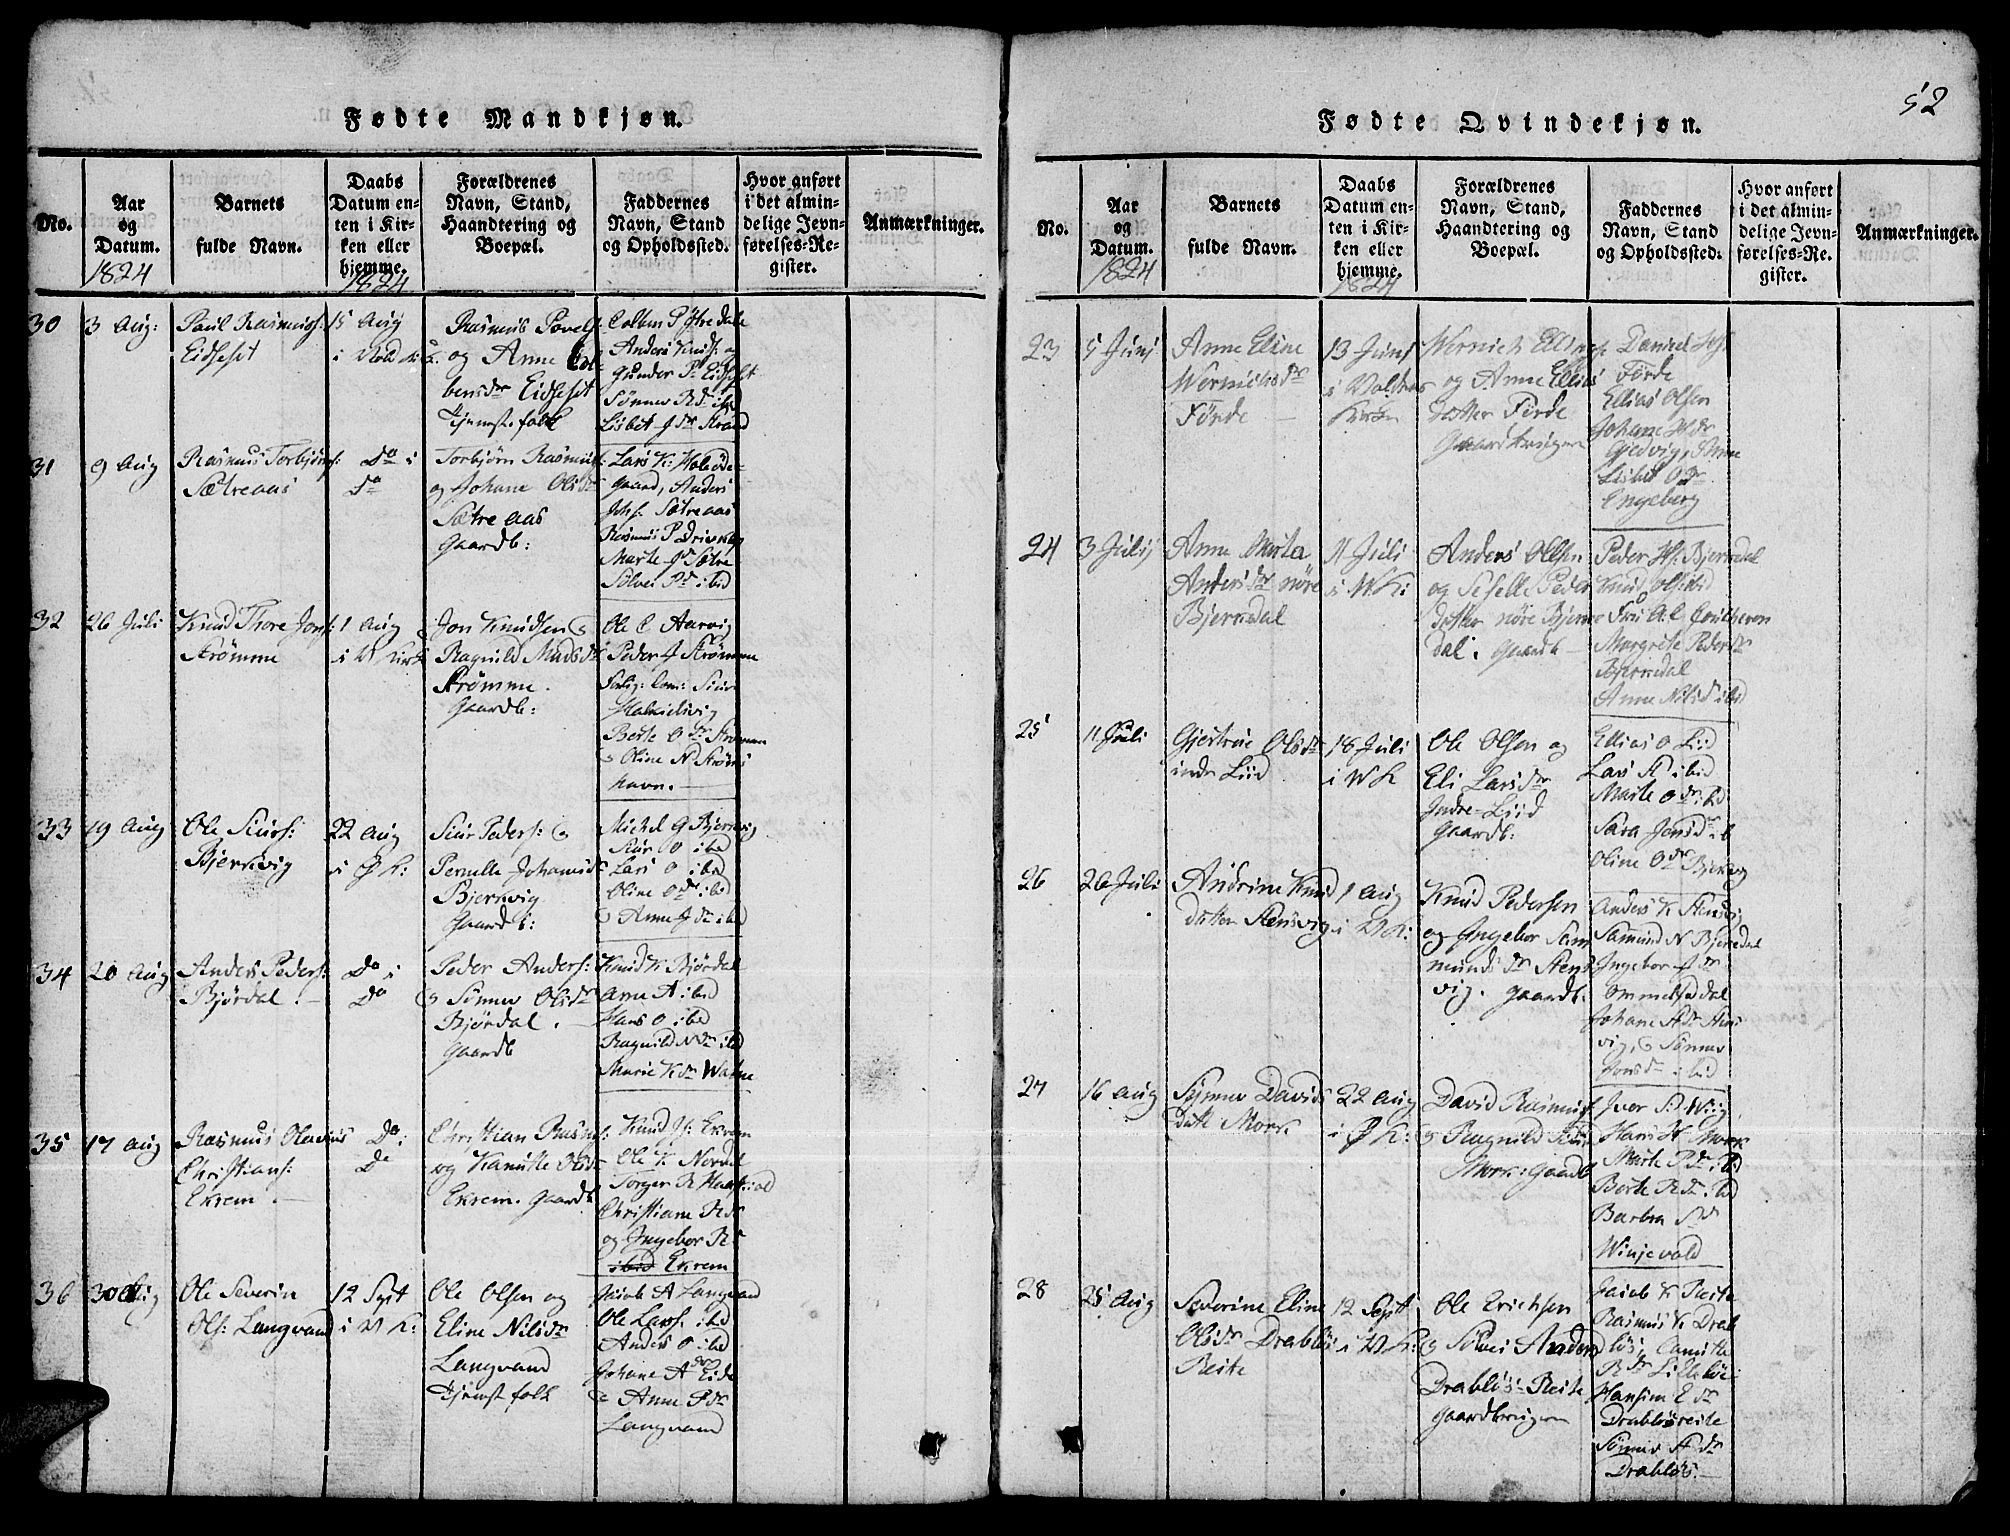 52
Fødte Mandkjøn.
No.
Aar
og
Datum.
1824
Barnets
fulde Navn.
Daabs
Datum en-
ten i Kir-
ken eller
hjemme.
1824
Forældrenes
Navn, Stand,
Haandtering og
Boepæl.
Faddernes
Navn, Stand
og Opholdssted.
Hvor anført
i det almin-
delige Jevn-
førelses-Re-
gister.
Anmærkninger.
30
3 Aug:
Paul Rasmuss:
Eidseset
15 Aug
Rasmus Povels:
og Anne Col-
bensdr Eidseset
Tjenst.folk
Colben P Ytredale
Anders Knuds: og
Gunder P. Eidseset
Sønnev Rdr ibid
Lisbet Jdr Strand
31
9 Aug
Rasmus Torbjørns:
Sætreaas
Do i
Do
Torbjørn Rasmuss:
og Johane Olsdr
Sætreaas
Gaardb:
Lars K:
gaard, Anders
Johs: Sætreaas
Rasmus P
Marte Jdr Sætre
Solvei Pdr ibid
32
26 Juli
Knud Thore Jons:
Strømme
1 Aug
i V Kirke
Jon Knudsen &
Ragnild Madsdr
Strømme.
Gaardb:
Ole C Aarvig
Peder J Strømme
Halkielsvig
Berte O dr Strømme
& Oline N Strøms
havn.
33
19 Aug
Ole Siurs:
Bjerkvig
22 Aug
i Ø K:
Siur Peders: &
Pernelle Johannisdr
Bjerkvig
Gaardb:
Michel G Bjerkvig
Siur O ibid
Lars O ibid
Oline O dr ibid
& Anne J dr ibid
34
20 Aug
Anders Peders:
Bjørdal.
Do i
Do
Peder Anders:
& Sønnev Olsdr
Bjørdal.
Gaardb
Knud K Bjørdal
Arne A ibid
Hans O ibid
Ragnild N dr ibid
Marie K dr Watne
35
17 Aug
Rasmus Olaus
Christians:
Ekrem.
Do i
Do
Christian Rasms:
og Kanutte Olsdr
Ekrem. Gaardb
Knud Js: Ekrem
Ole K Nordal
Torger R
Christiane R dr
og Ingebor R
ibid Ekrem
36
30 Aug
Ole Severin
Ols: Langvand
12 Sept
i V K:
Ole Olsen og
Eline Nilsdr
Langvand
Tjenst folk
Jacob A Langvand
Ole Lars: ibid
Anders O ibid
Johane A dr Eide
& Anne P dr
Langvand
Fødte Qvindekjøn.
No.
Aar
og
Datum.
1824
Barnets
fulde Navn.
Daabs
Datum en-
ten i Kir-
ken eller
hjemme.
1824
Forældrenes
Navn, Stand,
Haandtering og
Boepæl.
Faddernes
Navn, Stand
og Opholdssted.
Hvor anført
i det almin-
delige Jevn-
førelses-Re-
gister.
Anmærkninger.
23
5 Junj
Anne Eline
Wernichsdr
Førde
13 Junj
i Woldens
Kirke
Wernich Ellings:
og Anne Ellias
datter Førde
Gaardbruger
Daniel Js:
Førde
Ellias Olsen
Johane
Gjedvig,
Lisbet O dr
Engeberg
24
3 Julij
Anne Marta
Andersdr nøre
Bjerkdal
11 Juli
i W K:
Anders Olsen
og Seselle Peder
datter nøre Bjerke
dal. Gaardb
Peder Hs: Bjerkdal
Knud Ols ibid
Fru A:L
Margrete Pedersdr
Bjerkdal
Anne Nilsd ibid
25
11 Juli
Gjertrue Olsdr
indre Liid
18 Juli
i W K
Ole Olsen og
Eli Larsdr
Indre-Liid
Gaardb:
Ellias O Liid
Lars A ibid
Marte O dr ibid
Sara Jonsd ib
Oline O dr Bjerkvig
26
26 Juli
Andrine Knud
datter Stensvig
1 Aug
i V K:
Knud Pedersen
og Ingebor Sam
mundsdr Stens
vig. Gaardb.
Anders K Stensvig
Samund N Bjerkedal
Ingebor J dr
Ommelsædal
Johane A dr Stens
vig, & Sønnev
Jonsdr ibid
27
16 Aug
Synnev Davids
datt Mork
22 Aug
i Ø K:
David Rasmuss
& Ragnild
Mork: Gaardb
Iver S Wiig
Hans H Mork
Marte P dr ibid
Berte R dr ibid
Barbra S dr
Winjevold
28
25 Aug
Severine Eline
Olsdr Drabløs
Reite
12 Sept
i V K:
Ole Erichsen
& Solvei Anders
Drabløs-Reite
Gaardbruger
Jacob K Reite
Rasmus K Drab
løs, Canutte
R dr Lillebøe
Hansine E dr
Drabløsreite
Sønnev A dr
Drabløs.